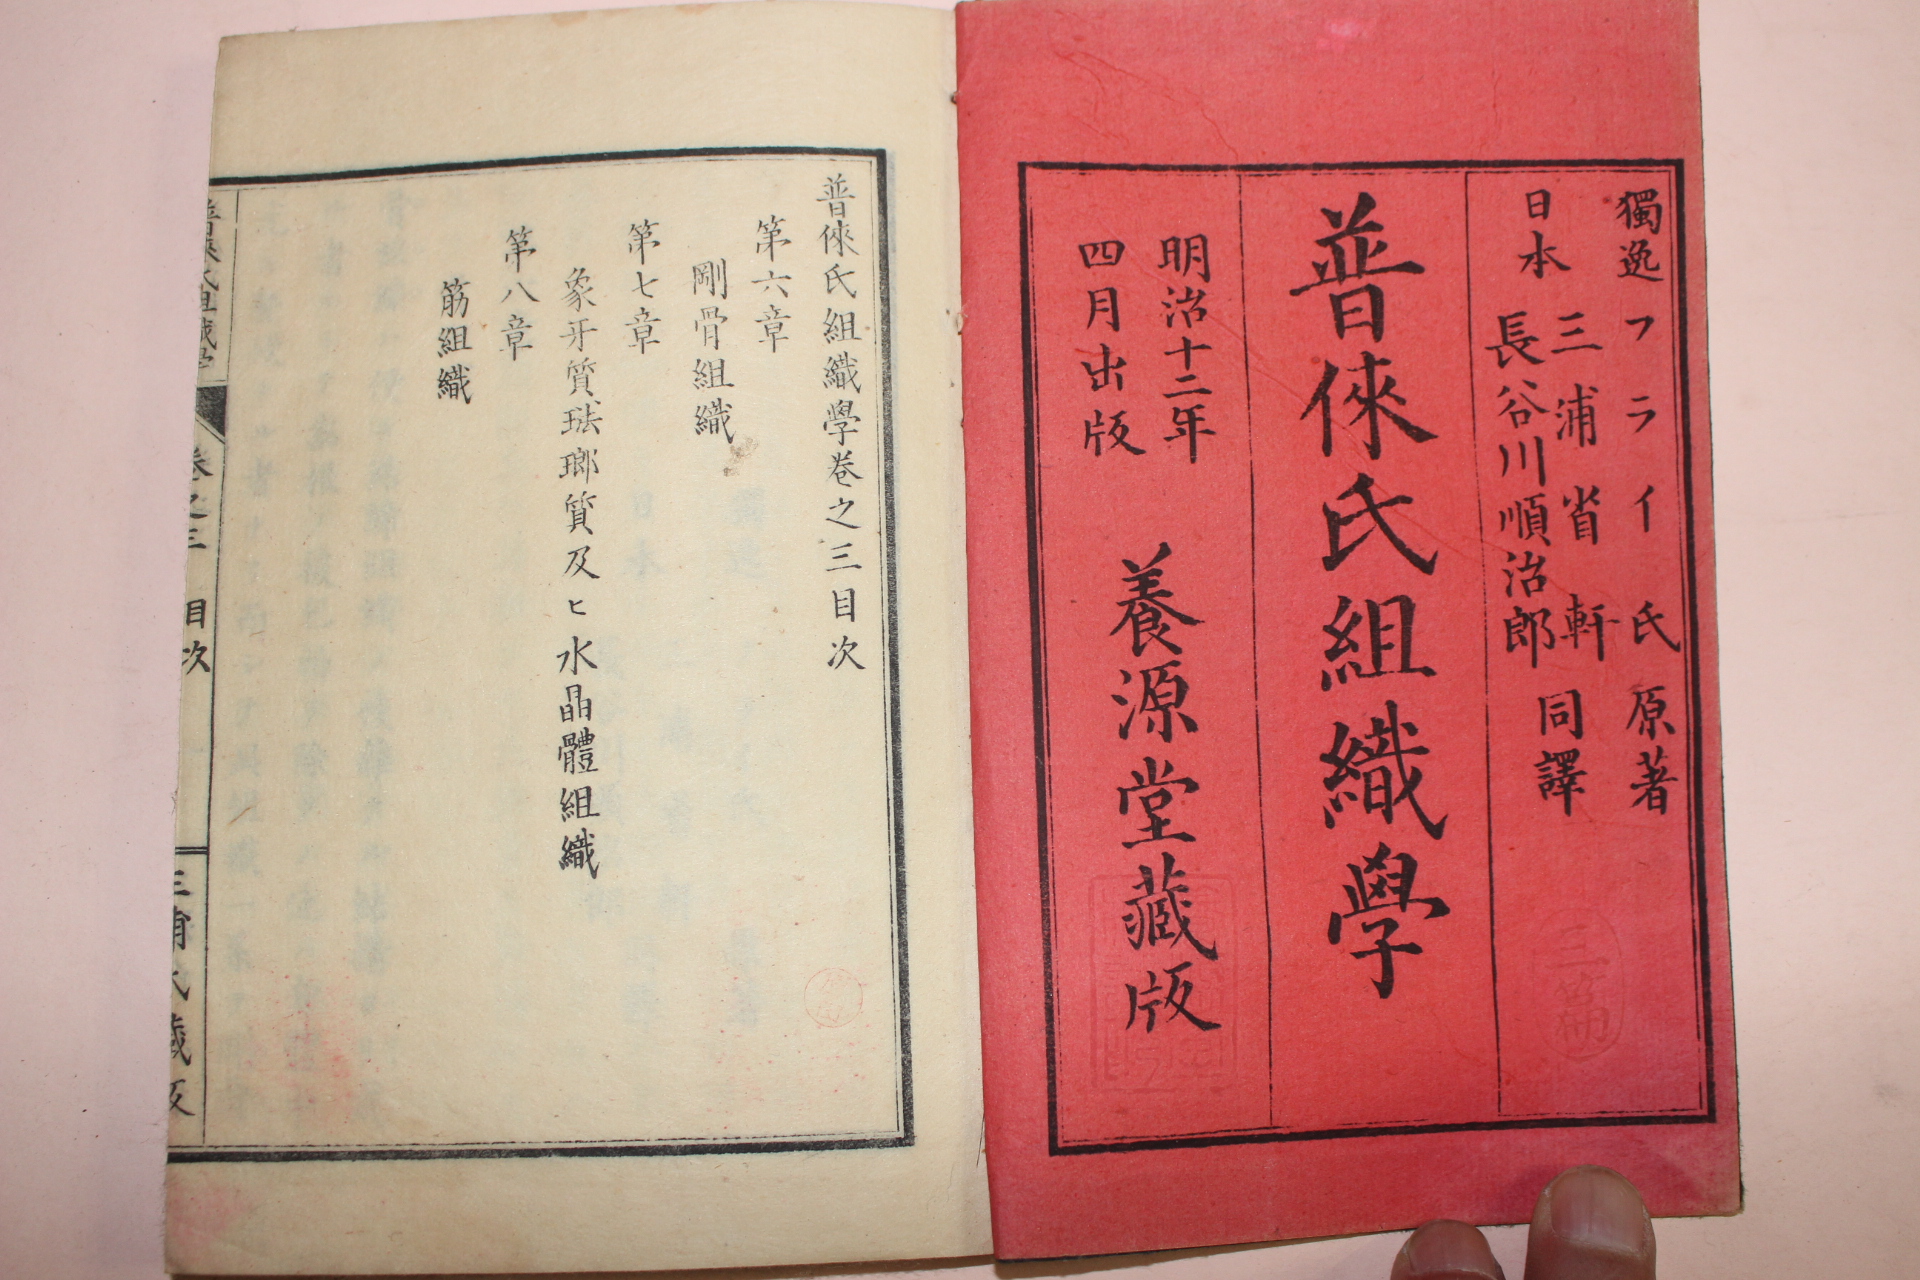 獨逸フライ氏原著
日本
三浦省軒
長谷川順治郎
同譯
普倈氏組織學
明治十二年
四月出版
養源堂藏版
普倈氏組織學卷之三目次
第六章
剛骨組織
第七章
象牙質琺瑯質及ヒ水晶體組織
第八章
筋組織
普倈氏組織學
卷之三
目次
三浦氏藏版